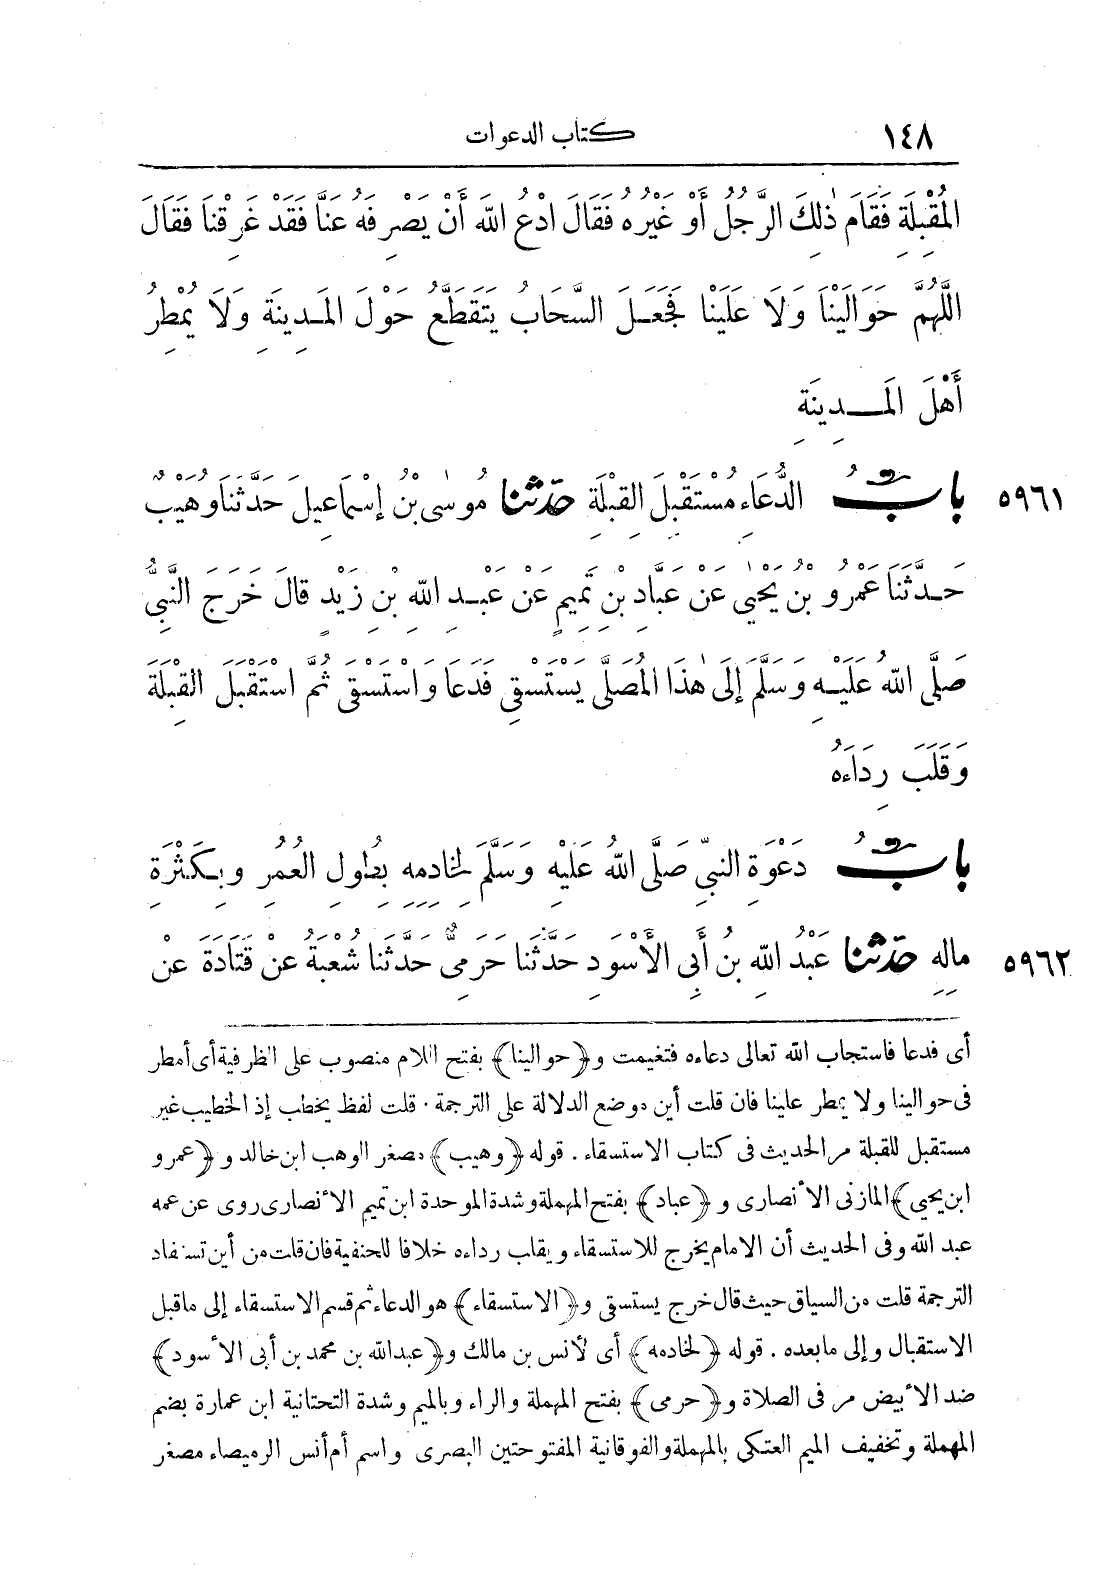 ١٤٨ كتاب الدعوات
المُقْبِلَةِ فَقَامَ ذٰلِكَ الرَّجُلُ أَوْ غَيْرُهُ فَقَالَ ادْعُ اللهَ أَنْ يَصْرِفَهُ عَنَّا فَقَدْ غَرِقْنَا فَقَالَ
اللّٰهُمَّ حَوَالَيْنَا وَلَا عَلَيْنَا فَجَعَلَ السَّحَابُ يَتَقَطَّعُ حَوْلَ المَدِينَةِ وَلَا يُمْطِرُ
أَهْلَ المَدِينَةِ
٥٩٦١ بابُ الدُّعَاءِ مُسْتَقْبِلَ القِبْلَةِ حدّثنا مُوسٰى بْنُ إِسْمَاعِيلَ حَدَّثَنَا وُهَيْبٌ
حَدَّثَنَا عَمْرُو بْنُ يَحْيٰى عَنْ عَبَّادِ بْنِ تَمِيمٍ عَنْ عَبْدِ اللهِ بْنِ زَيْدٍ قَالَ خَرَجَ النَّبِيُّ
صَلَّى اللهُ عَلَيْهِ وَسَلَّمَ إِلَى هٰذَا المُصَلَّى يَسْتَسْقِى فَدَعَا وَاسْتَسْقَى ثُمَّ اسْتَقْبَلَ القِبْلَةَ
وَقَلَبَ رِدَاءَهُ
بابُ دَعْوَةِ النبيِّ صَلَّى اللهُ عَلَيْهِ وَسَلَّمَ لِخَادِمِهِ بِطُولِ العُمُرِ وَبِكَثْرَةِ
٥٩٦٢ مالِهِ حدّثنا عَبْدُ اللهِ بنُ أَبِى الأَسْوَدِ حَدَّثَنَا حَرَمِىٌّ حَدَّثَنا شُعْبَةُ عَنْ قَتَادَةَ عَنْ
أى فدعا فاستجاب الله تعالى دعاءه فتغيمت و ﴿حوالينا﴾ بفتح اللام منصوب على الظرفية أى أمطر
فى حوالينا ولا يمطر علينا فان قلت أين موضع الدلالة على الترجمة. قلت لفظ يخطب إذ الخطيب غير
مستقبل للقبلة مر الحديث فى كتاب الاستسقاء. قوله ﴿وهيب﴾ مصغر الوهب ابن خالد و ﴿عمرو
ابن يحيي﴾ المازنى الأنصارى و ﴿عباد﴾ بفتح المهملة وشدة الموحدة ابن تميم الأنصارى روى عن عمه
عبد الله وفى الحديث أن الامام يخرج للاستسقاء ويقلب رداءه خلافا للحنفية فان قلت من أين تستفاد
الترجمة قلت من السياق حيث قال خرج يستسقى و ﴿الاستسقاء﴾ هو الدعاء ثم قسم الاستسقاء إلى ماقبل
الاستقبال وإلى مابعده. قوله ﴿لخادمه﴾ أى لأنس بن مالك و ﴿عبد الله بن محمد بن أبى الأسود﴾
ضد الأبيض مر فى الصلاة و ﴿حرمى﴾ بفتح المهملة والراء وبالميم وشدة التحتانية ابن عمارة بضم
المهملة وتخفيف الميم العتكى بالمهملة والفوقانية المفتوحتين البصرى واسم أم أنس الرميصاء مصغر